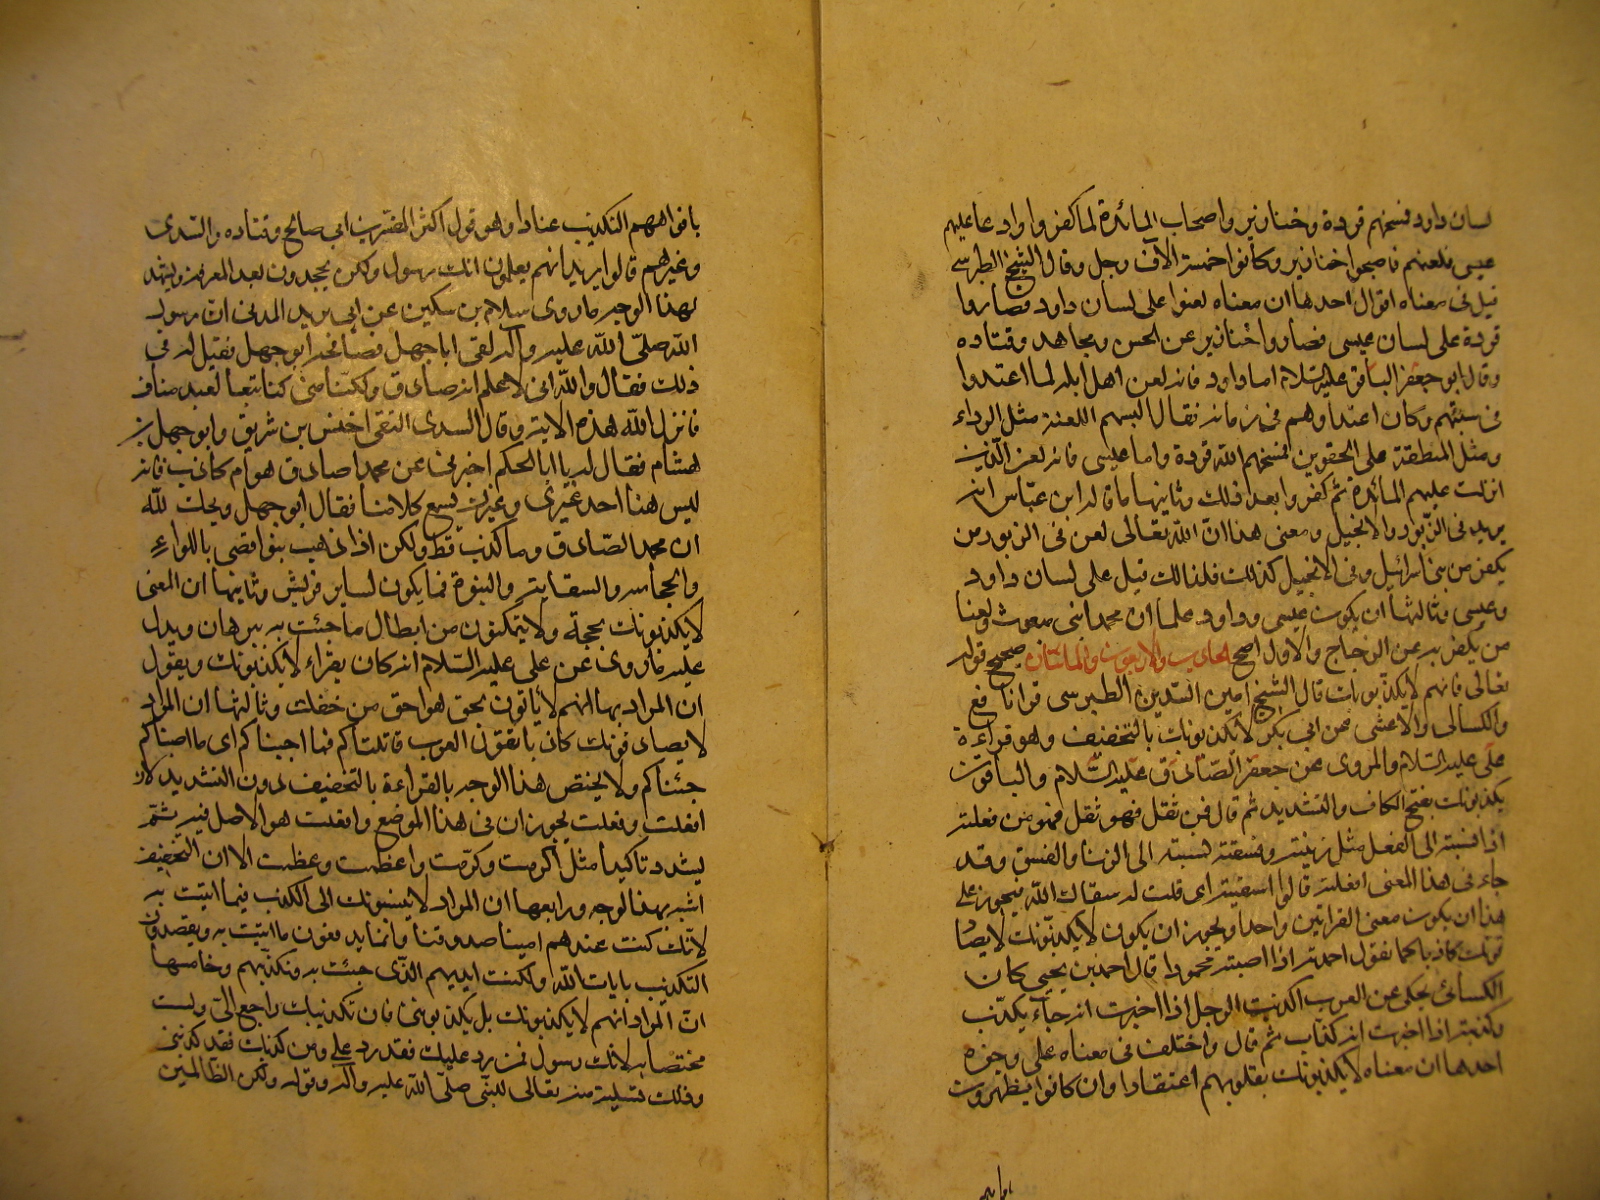 لسان داود فمسخهم قردة وخنازير واصحاب المائدة لما كفروا واد دعا عليهم
عيسى فلعنهم فاصبحوا خنازير وكانوا خمسة الآف رجل وقال الشيخ الطبرسي
قيل في معناه اقوال احدها ان معناه لعنوا على لسان داود فصاروا
قردة على لسان عيسى فصاروا خنازير عن الحسن ومجاهد وقتاده
وقال ابو جعفر الباقر عليه السلام اما داود فانه لعن اهل ايله لما اعتدوا
في سبتهم وكان اعتداوهم في زمانه فقال البسهم اللعنة مثل الرداء
ومثل المنطقة على الحقوين فمسخهم الله قردة واما عيسى فانه لعن الذين
انزلت عليهم المائدة ثم كفروا بعد ذلك وثانيها ما قاله ابن عباس انه
يريد في الزبور والانجيل ومعنى هذا ان الله تعالى لعن في الزبور من
يكفر من بني اسرائيل وفي الانجيل كذلك فلذالك قيل على لسان داود
وعيسى وثالثها ان يكون عيسى وداود علما ان محمدا نبي مبعوث ولعنا
من يكفر به عن الزجاج والاول اصح الحادي والاربعون والمائتان صحيح قوله
تعالى فانهم لا يكذبونك قال الشيخ امين الدين الطبرسى قرا نافع
والكسائي والاعشى عن ابي بكر لا يكذبونك بالتخفيف وهو قراءة
على عليه السلام والمروى عن جعفر الصادق عليه السلام والباقون
يكذبونك بفتح الكاف والتشديد ثم قال فمن ثقل فهو ثقل فهو من فعلته
اذا نسبته الى الفعل مثل زنيته وفسقته نسبته الى الزنا والفسق وقد
جاء في هذا المعنى افعلته قالوا اسقيته اى قلت له سقاك الله فيجوز على
هذا ان يكون معنى القراتين واحدا ويجوز ان يكون لا يكذبونك لا يصا
فونك كاذبا كما تقول احمدته اذا اصبته محمودا قال احمد بن يحيى كان
الكسائي يحكى عن العرب اكذبت الرجل اذا اخبرت انه جاء بكذب
وكذبته اذا اخبرت انه كذاب ثم قال واختلف في معناه على وجوه
احدها ان معناه لا يكذبونك بقلوبهم اعتقادا وان كانوا يظهرون
بافواههم
بافواههم التكذيب عنادا وهو قول اكثر المفسرين ابي صالح وقتاده والسدى
وغيرهم قالوا يريد انهم يعلمون انك رسول ولكن يجحدون بعد المعرفة ويشهد
لهذا الوجه ما روى سلام بن سكين عن ابي يزيد المدنى ان رسول
الله صلى الله عليه وآله لقى ابا جهل فصافحه ابو جهل فقيل له في
ذلك فقال والله انى لاعلم انه صادق ولكنا متى كنا تبعا لعبد مناف
فانزل الله هذه الاية وقال السدى التقى اخنس بن شريق وابو جهل بن
هشام فقال له يا ابا الحكم اخبرنى عن محمد اصادق هو ام كاذب فانه
ليس هنا احد غيرى وغيرك يسمع كلامنا فقال ابو جهل ويحك والله
ان محمد الصادق وما كذب قط ولكن اذا ذهب بنو اقصى باللواء
والحجابه والسقاية والنبوة فما يكون لساير قريش وثانيها ان المعنى
لا يكذبونك بحجة ولا يتمكنون من ابطال ما جئت به ببرهان ويدل
عليه ما روى عن على عليه السلام انه كان يقراء لا يكذبونك ويقول
ان المراد بها انهم لا ياتون بحق هو احق من حقك وثالثها ان المراد
لا يصادفونك كاذبا تقول العرب قاتلناكم فما اجبناكم اى ما اصبناكم
جبناكم ولا يختص هذا الوجه بالقراءة بالتخفيف دون التشديد لان
افعلت وفعلت يجوزان في هذا الموضع وافعلت هو الاصل فيه ثم
يشدد تاكيدا مثل اكرمت وكرمت واعظمت وعظمت الا ان التخفيف
اشبه بهذا لوجه ورابعها ان المراد لا ينسبونك الى الكذب فيما اتيت به
لانك كنت عندهم امينا صدوقا وانما يدفعون ما اتيت به ويقصدون
التكذيب بايات الله ولكنت لديهم الذى جئت به وتكذيبهم وخامسها
ان المراد انهم لا يكذبونك بل يكذبونى فان تكذيبك راجع الى ولست
مختصا به لانك رسول فمن رد عليك فقد رد على ومن كذبك فقد كذبنى
وذلك تسلية منه تعالى للنبى صلى الله عليه وآله وقوله ولكن الظالمين